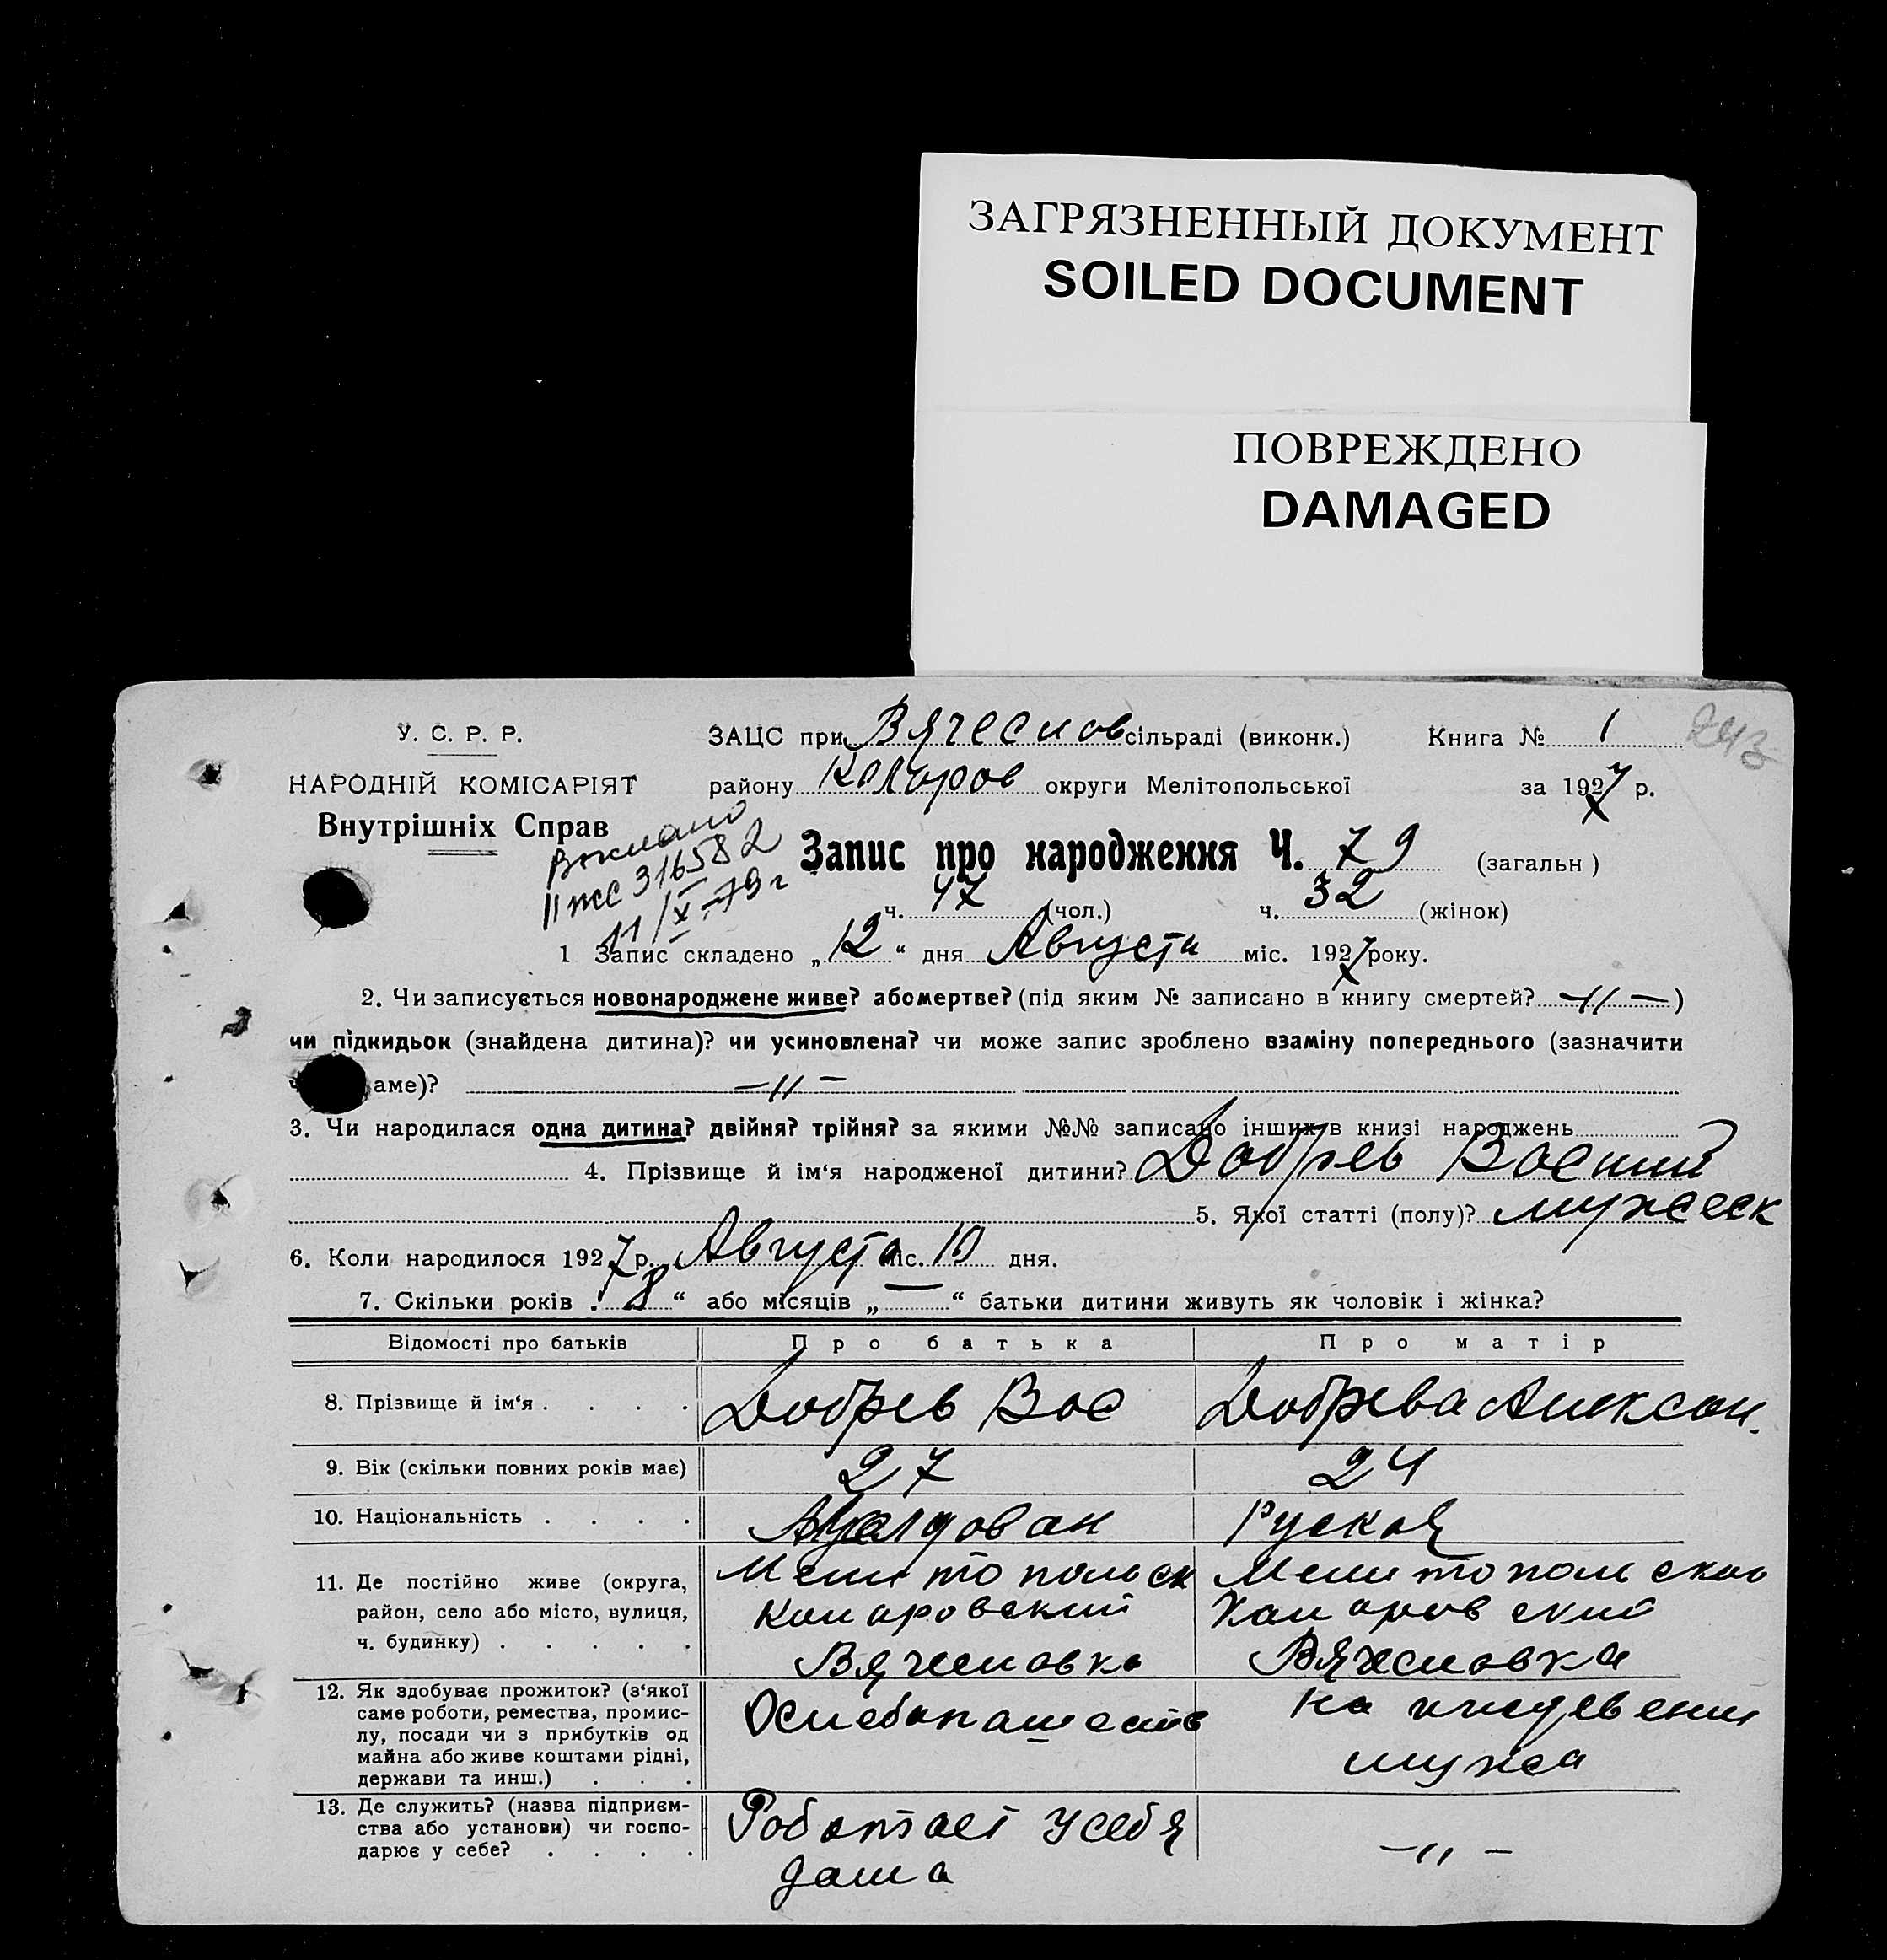 ЗАГРЯЗНЕННЫЙ ДОКУМЕНТ
SOILED DOCUMENT
ПОВРЕЖДЕНО
DAMAGED
У. С. Р. Р. ЗАЦС при Вячеслов сільраді (виконк.) Книга № 1 243
НАРОДНІЙ КОМІСАРІЯТ району Коларов округи Мелітопольської за 1927 р.
Внутрішніх Справ
Запис про народження Ч. 79 (загальн)
II ЖС 316582
11/X-79 г
ч. 47 (чол.) ч. 32 (жінок)
1 Запис складено „12“ дня Августа міс. 1927 року.
2. Чи записується новонароджене живе? або мертве? (під яким № записано в книгу смертей? —〃—)
чи підкидьок (знайдена дитина)? чи усиновлена? чи може запис зроблено взаміну попереднього (зазначити
аме)? —〃—
3. Чи народилася одна дитина? двійня? трійня? за якими №№ записано інших в книзі народжень
4. Прізвище й ім‘я народженої дитини? Добрев Восилий
5. Якої статті (полу)? мужеск
6. Коли народилося 1927 р. Августа міс. 10 дня.
7. Скільки років „8“ або місяців „—“ батьки дитини живуть як чоловік і жінка?
Відомості про батьків Про батька Про матір
8. Прізвище й ім‘я . . . . Добрев Вос Добрева Алексан.
9. Вік (скільки повних років має) 27 24
10. Національність . . . . Молдован Руская
11. Де постійно живе (округа, Мелитопольск Мелитопольскоо
район, село або місто, вулиця, Коларовский Коларовский
ч. будинку) . . . . . Вячесловка Вячесловка
12. Як здобуває прожиток? (з‘якої
саме роботи, ремества, промис- на иждевении
лу, посади чи з прибутків од мужа
майна або живе коштами рідні,
держави та инш.) . . .
13. Де служить? (назва підприєм- Роботает у себя
ства або установи) чи госпо- —〃—
дарює у себе? . . . . дома